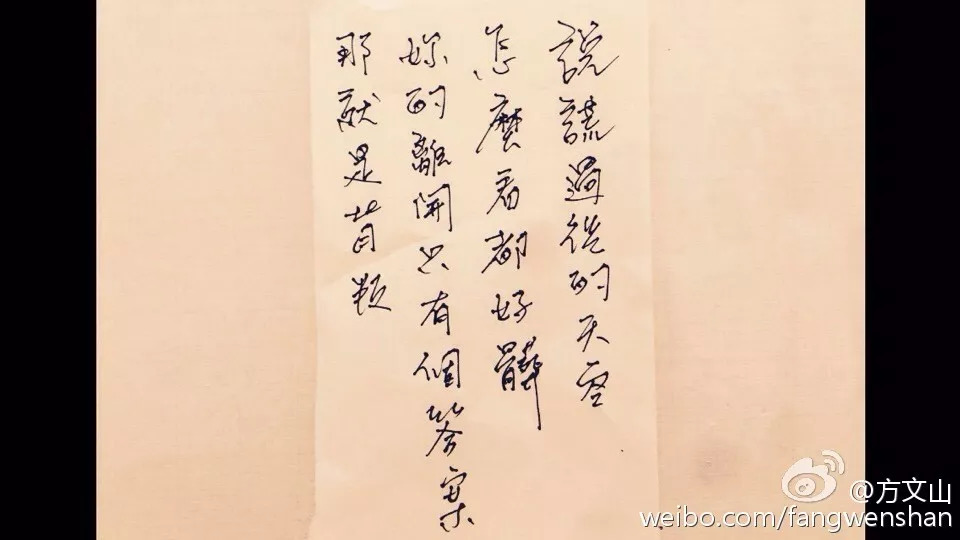 說謊過後的天空
怎麼看都好髒
妳的離開只有個答案
那就是背叛
@方文山
weibo.com/fangwenshan